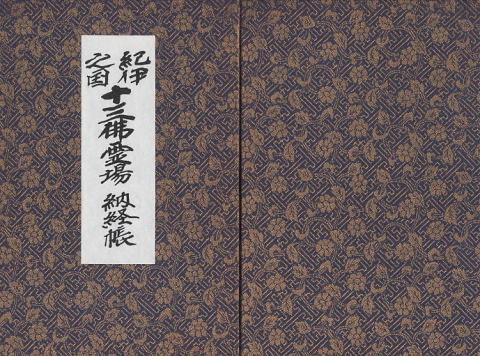 紀伊
之国
十三佛霊場 納経帳